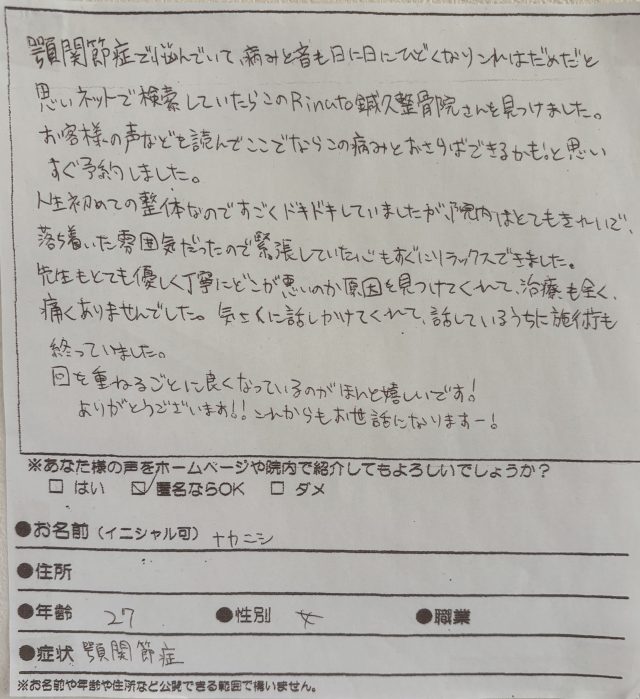 顎関節症で悩んでいて、痛みと音も日に日にひどくなりこれはだめだと
思いネットで検索していたらこのRinato鍼灸整骨院さんを見つけました。
お客様の声などを読んでここでならこの痛みとおさらばできるかも!と思い
すぐ予約しました。
人生初めての整体なのですごくドキドキしていましたが、院内はとてもきれいで、
落ち着いた雰囲気だったので緊張していた心もすぐにリラックスできました。
先生もとても優しく丁寧にどこが悪いのか原因を見つけてくれて、治療も全く、
痛くありませんでした。気さくに話しかけてくれて、話しているうちに施術も
終っていました。
回を重ねるごとに良くなっているのがほんと嬉しいです!
ありがとうございます!!これからもお世話になりますー!
※あなた様の声をホームページや院内で紹介してもよろしいでしょうか?
□ はい ☑ 匿名ならOK □ ダメ
●お名前(イニシャル可) ナカニシ
●住所
●年齢 27 ●性別 女 ●職業
●症状 顎関節症
※お名前や年齢や住所など公開できる範囲で構いません。